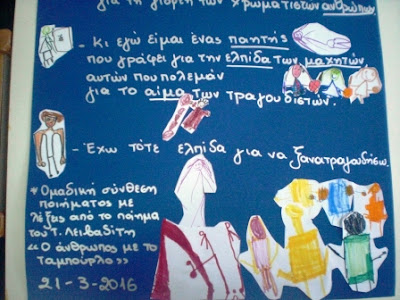 για τη γιορτή των χρωματιστών ανθρώπων
- Κι εγώ είμαι ένας ποιητής
που γράφει για την ελπίδα των μαχητών
αυτών που πολεμάν
για το αίμα των τραγουδιστών.
- Έχω τότε ελπίδα για να ξανατραγουδήσω.
* Ομαδική σύνθεση
ποιήματος με
λέξεις από το ποίημα
του Τ. Λειβαδίτη
«Ο άνθρωπος με το
ταμπούρλο»
21-3-2016